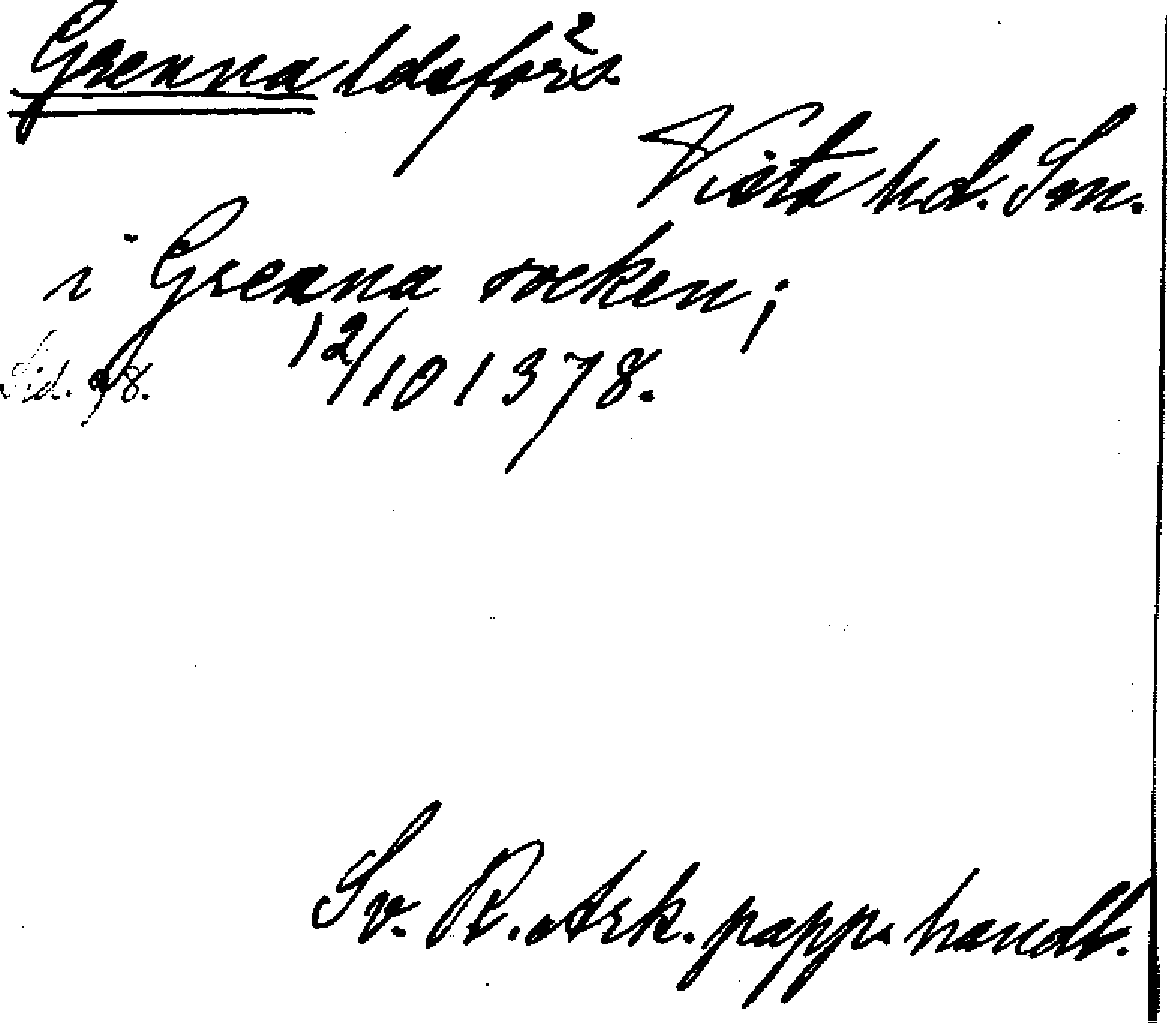 Grenna ldsförs.
Vista hd. Sm.
i Grenna socken;
Sid. 98. 12/10 1378.
Sv. R. Ark. papp. handl.